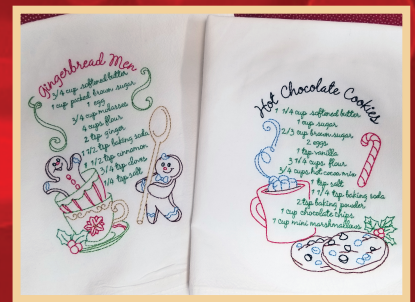 Gingerbread Men
3/4 cup softened butter
1 cup packed brown sugar
1 egg
3/4 cup molasses
4 cups flour
2 tsp ginger
1 1/2 tsp baking soda
1 1/2 tsp cinnamon
3/4 tsp cloves
1/4 tsp salt
Hot Chocolate Cookies
1 1/4 cup softened butter
1 cup sugar
2/3 cup brown sugar
2 eggs
1 tsp vanilla
3 1/4 cups flour
3/4 cups hot cocoa mix
1 tsp salt
1 1/4 tsp baking soda
2 tsp baking powder
1 cup chocolate chips
1 cup mini marshmallows